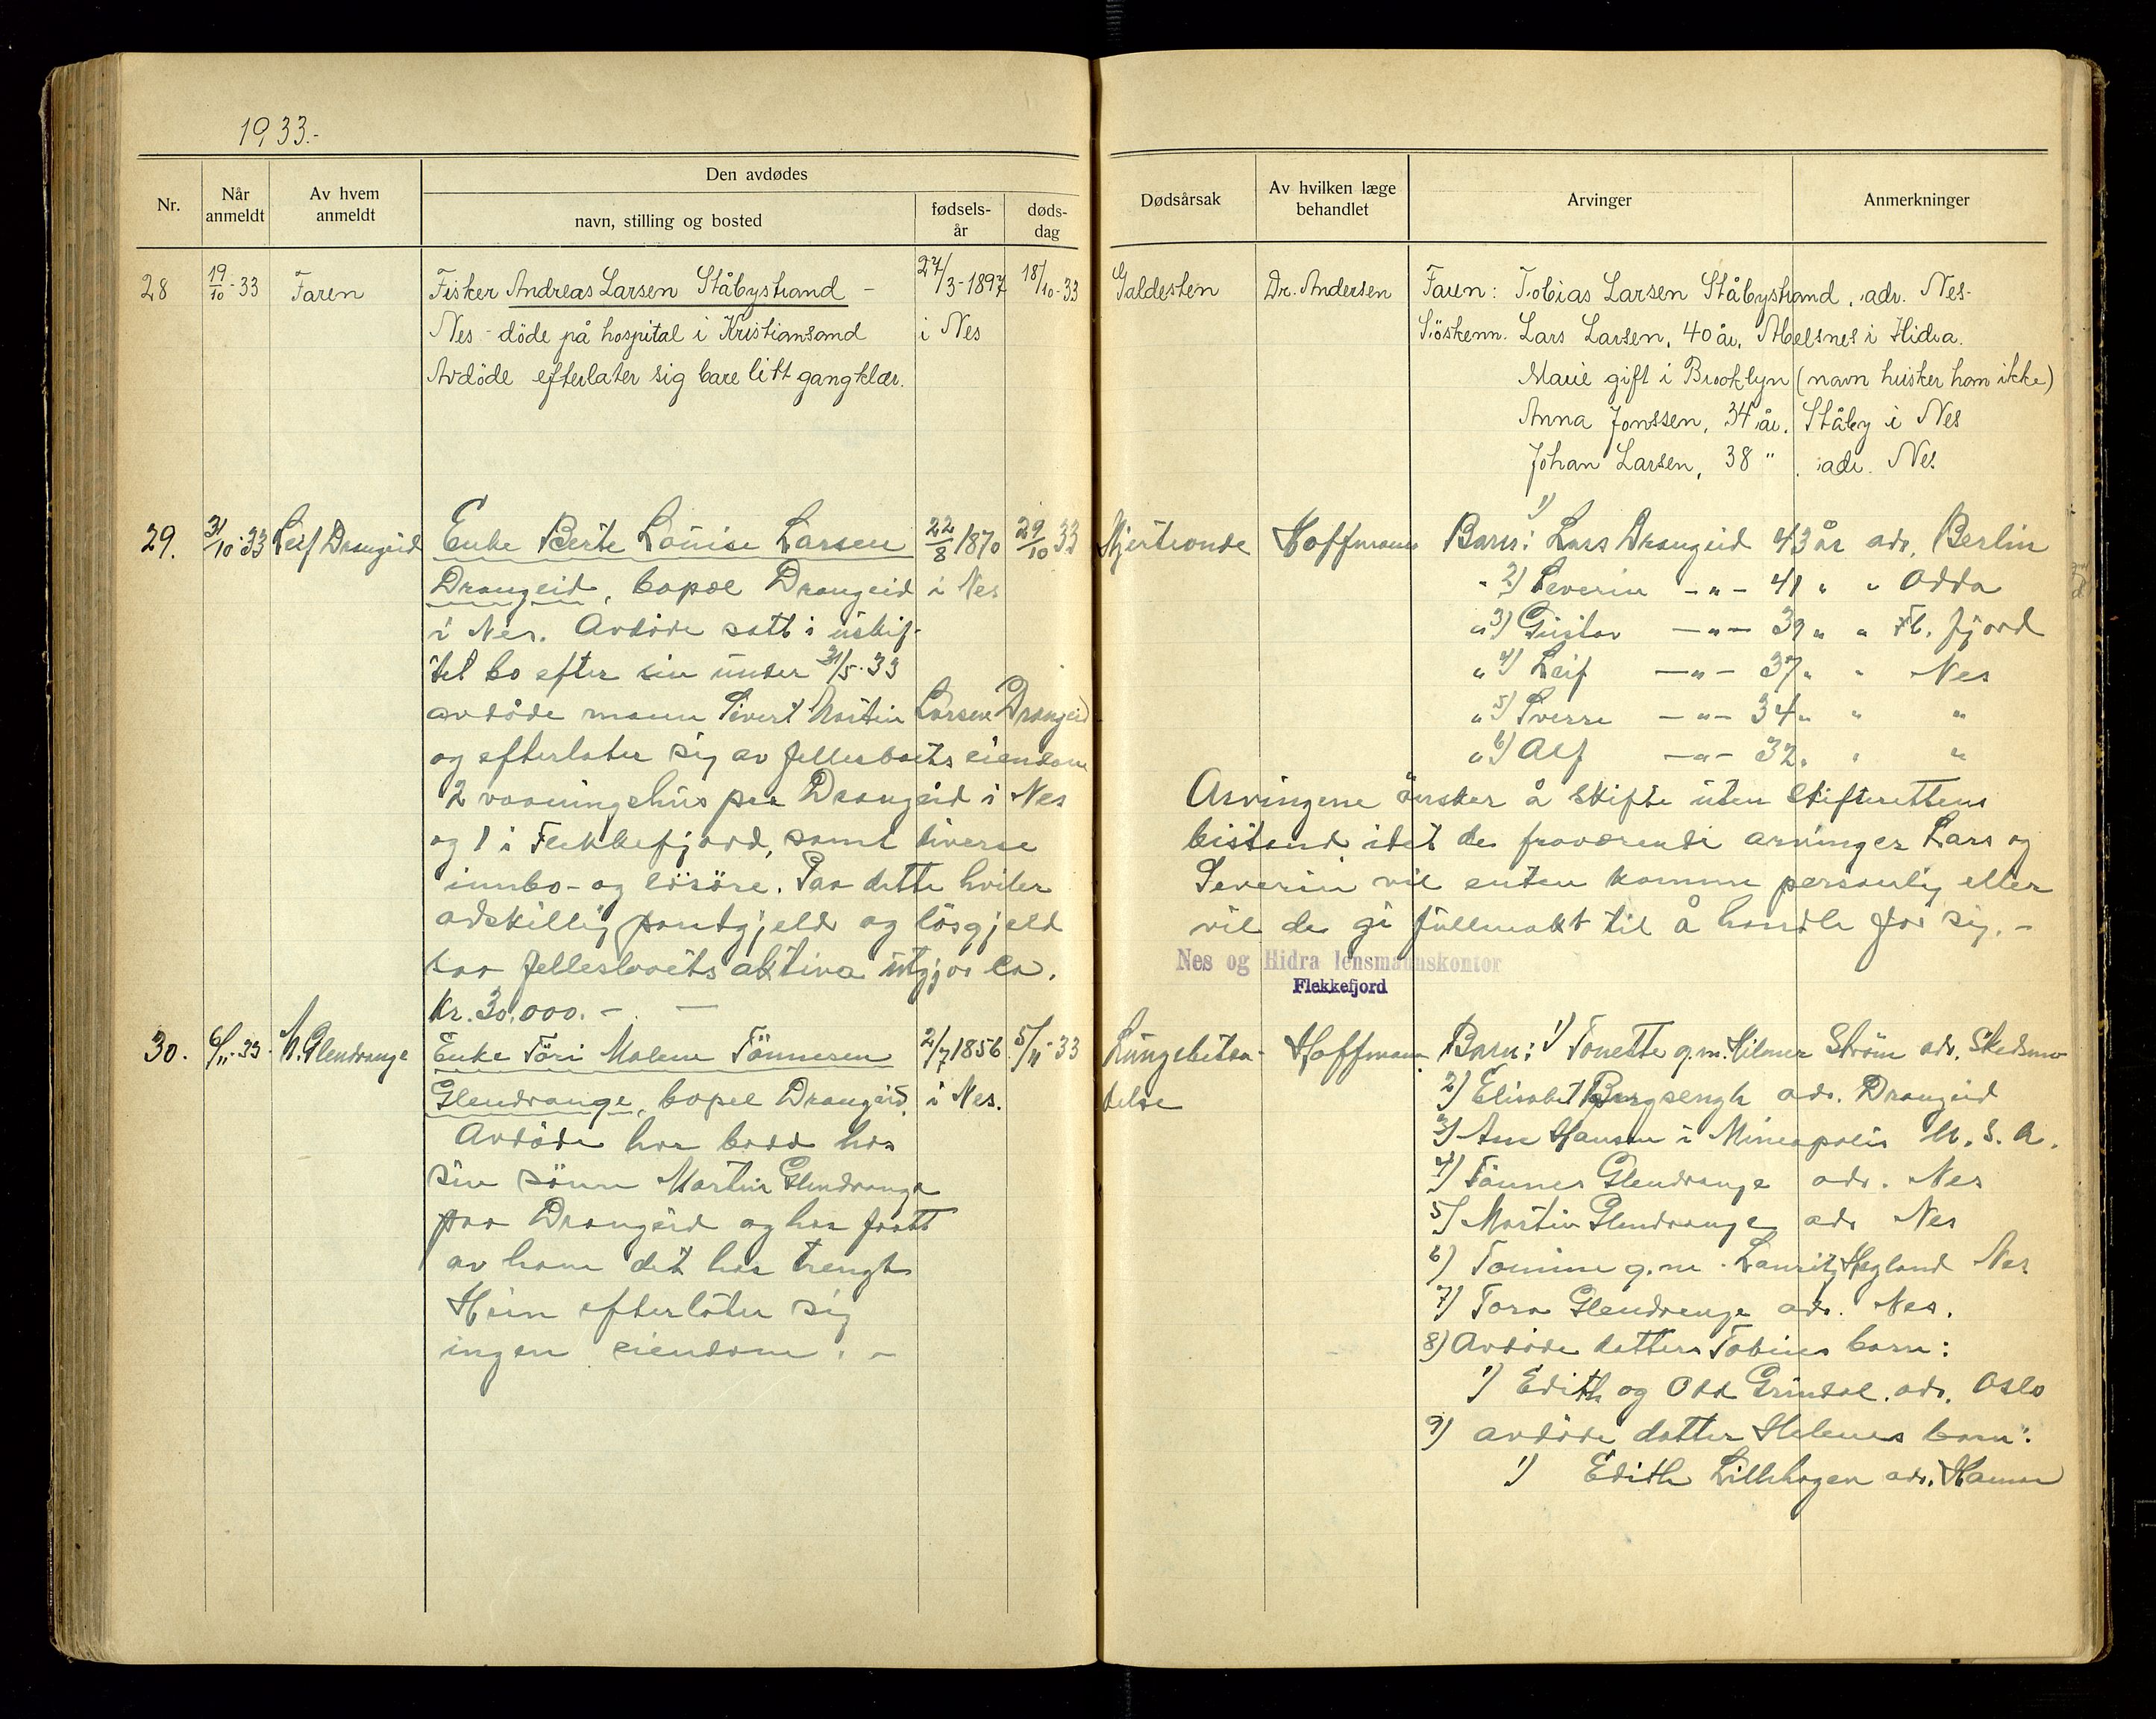 1933.-
Nr.
Når anmeldt
Av hvem anmeldt
Den avdødes
navn, stilling og bosted
fødsels-år
døds-dag
Dødsårsak
Av hvilken læge behandlet
Arvinger
Anmerkninger
28
19/10-33
Faren
Fisker Andreas Larsen Ståbystrand -
Nes - döde på hospital i Kristiansand
Avdöde efterlater sig bare litt gangklær.
27/3-1897
i Nes
18/10-33
Galdesten
Dr. Andersen
Faren: Tobias Larsen Ståbystrand, adr. Nes-
Söskenn. Lars Larsen, 40 år, Abelsnes i Hidra.
Marie gift i Brooklyn (navn husker han ikke)
Anna Jonssen, 34 år. Ståby i Nes
Johan Larsen, 38 " . adr. Nes
29.
31/10-33
Leif Drangeid
Enke Berte Louise Larsen
Drangeid, bopæl Drangeid
i Nes. Avdöde satt i uskif-
tet bo efter sin under 31/5-33
avdöde mann Sivert Martin Larsen Drangeid
og efterlater sig av fellesboets eiendom
2 vaaningshus paa Drangeid i Nes
og 1 i Flekkefjord, samt diverse
innbo- og lösöre. Paa dette hviler
adskillig pantgjeld og lösgjeld
saa fellesboets aktiva utgjör ca.
Kr. 30.000. -
22/8 1870
i Nes
29/10 33
Hjertronde
Hoffmann
Barn: 1) Lars Drangeid 43 år adr. Berlin
" 2) Severin -"- 41 " " Odda
" 3) Gustav -"- 39 " " Fl. fjord
" 4) Leif -"- 37 " " Nes
" 5) Sverre -"- 34 " " "
" 6) Alf -"- 32 " " "
Arvingene önsker å skifte uten skifterettens
bistand idet de fraværende arvinger Lars og
Severin vil enten komme personlig eller
vil de gi fullmakt til å handle for sig. -
Nes og Hidra lensmannskontor
Flekkefjord
30.
6/11-33
M. Glendrange
Enke Töri Malene Tönnesen
Glendrange, bopel Drangeid
Avdöde har bodd hos
sin sönn Martin Glendrange
paa Drangeid og har faatt
av ham det hun trengte
Hun efterlater sig
ingen eiendom. -
2/7 1856
i Nes.
5/11-33
Lungebeten-
delse
Hoffmann
Barn: 1) Tonette g.m. Hilmar Ström adr. Skedsmo
2) Elisabet Bergsengh adr. Drangeid
3) Ane Hansen i Mineapolis U. S. A.
4) Tönnes Glendrange adr. Nes
5) Martin Glendrange adr Nes
6) Tomine g.m. Lauritz Hegland Nes
7) Tora Glendrange adr. Nes.
8) Avdöde datters Tobines barn:
1) Edith og Odd Grindal. adr. Oslo
9) avdöde datter Helenes barn:
1) Edith Lillehagen adr. Hamar